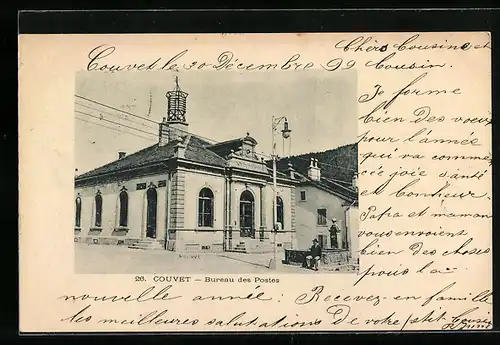 Couvet le 30 Décembre 99
Chers Cousine et
Cousin.
Je forme
bien des voeux
pour l'année
qui va commen
cée joie santé
et bonheur.
Papa et maman
vous envoient
bien des choses
pour la
26. COUVET — Bureau des Postes
nouvelle année. Recevez en famille
les meilleures salutations de votre petit Cousin